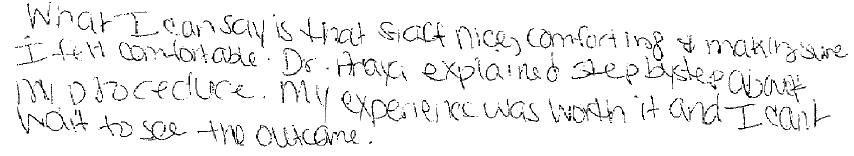 What I can say is that staff nice, comforting & making sure
I felt comfortable. Dr. explained step by step about
my procedure. My experience was worth it and I can't
wait to see the outcome.